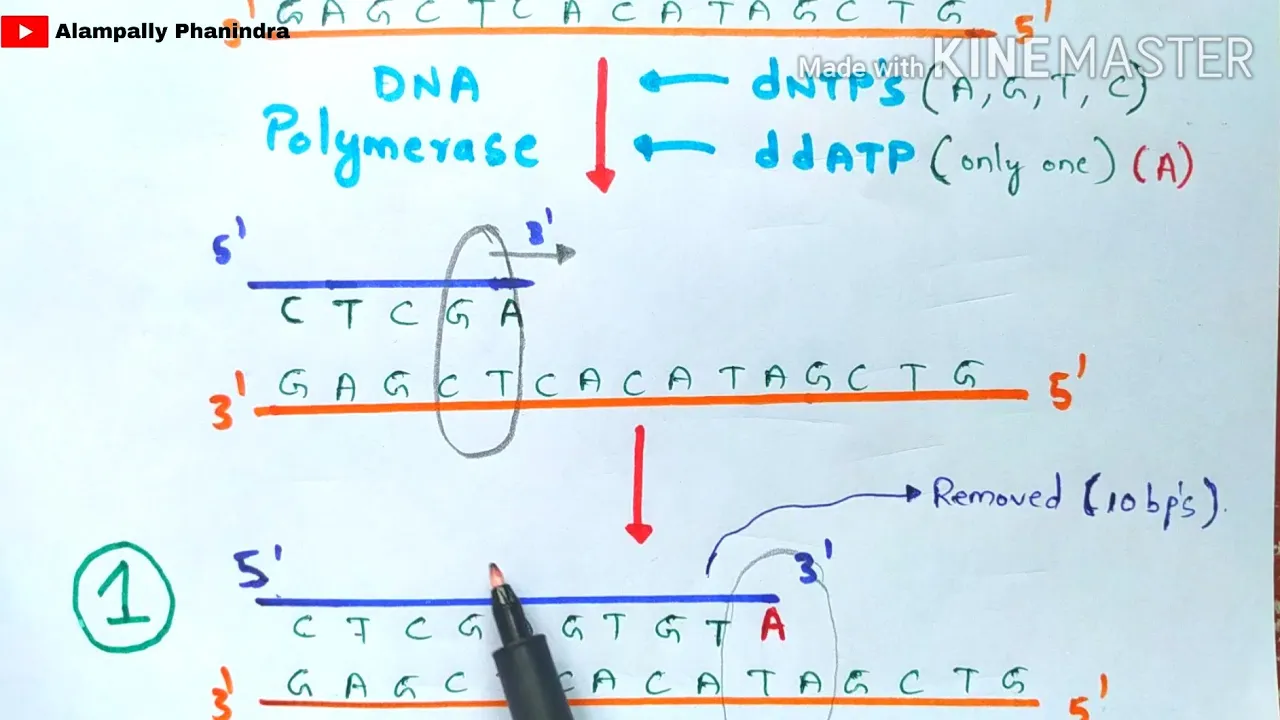 3' G A G C T C A C A T A G C T G 5'
Alampally Phanindra
Made with KINEMASTER
DNA Polymerase
dNTP'S (A, G, T, C)
ddATP (only one) (A)
5' 3'
C T C G A
3' G A G C T C A C A T A G C T G 5'
Removed (10 bp's).
1
5' 3'
C T C G G T G T A
3' G A G C C A C A T A G C T G 5'